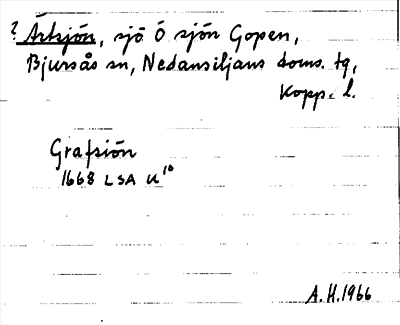 ? Ärtsjön, sjö Ö sjön Gopen,
Bjursås sn, Nedansiljans doms. tg,
Kopp. l.
Grafsiön
1668 LSA U¹⁰
A.H. 1966